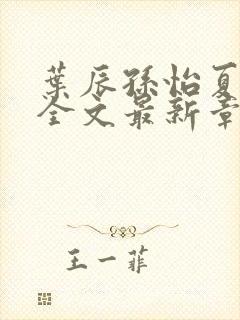 葉辰孫怡夏
全文最新章
王一菲